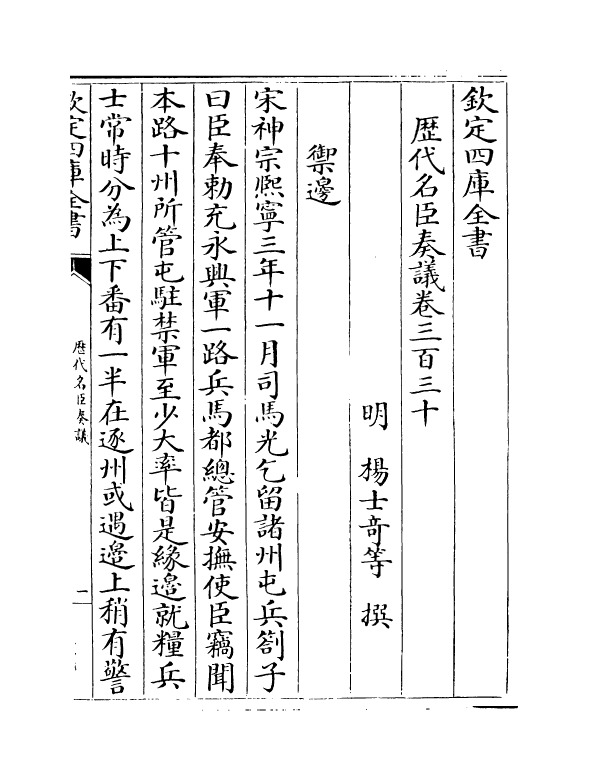 欽定四庫全書
歷代名臣奏議卷三百三十
明 楊士竒等 撰
禦邊
宋神宗熈寧三年十一月司馬光乞留諸州屯兵劄子
曰臣奉勅充永興軍一路兵馬都總管安撫使臣竊聞
本路十州所管屯駐禁軍至少大率皆是緣邉就糧兵
士常時分為上下番有一半在逐州或遇邉上稍有警
欽定四庫全書
歷代名臣奏議